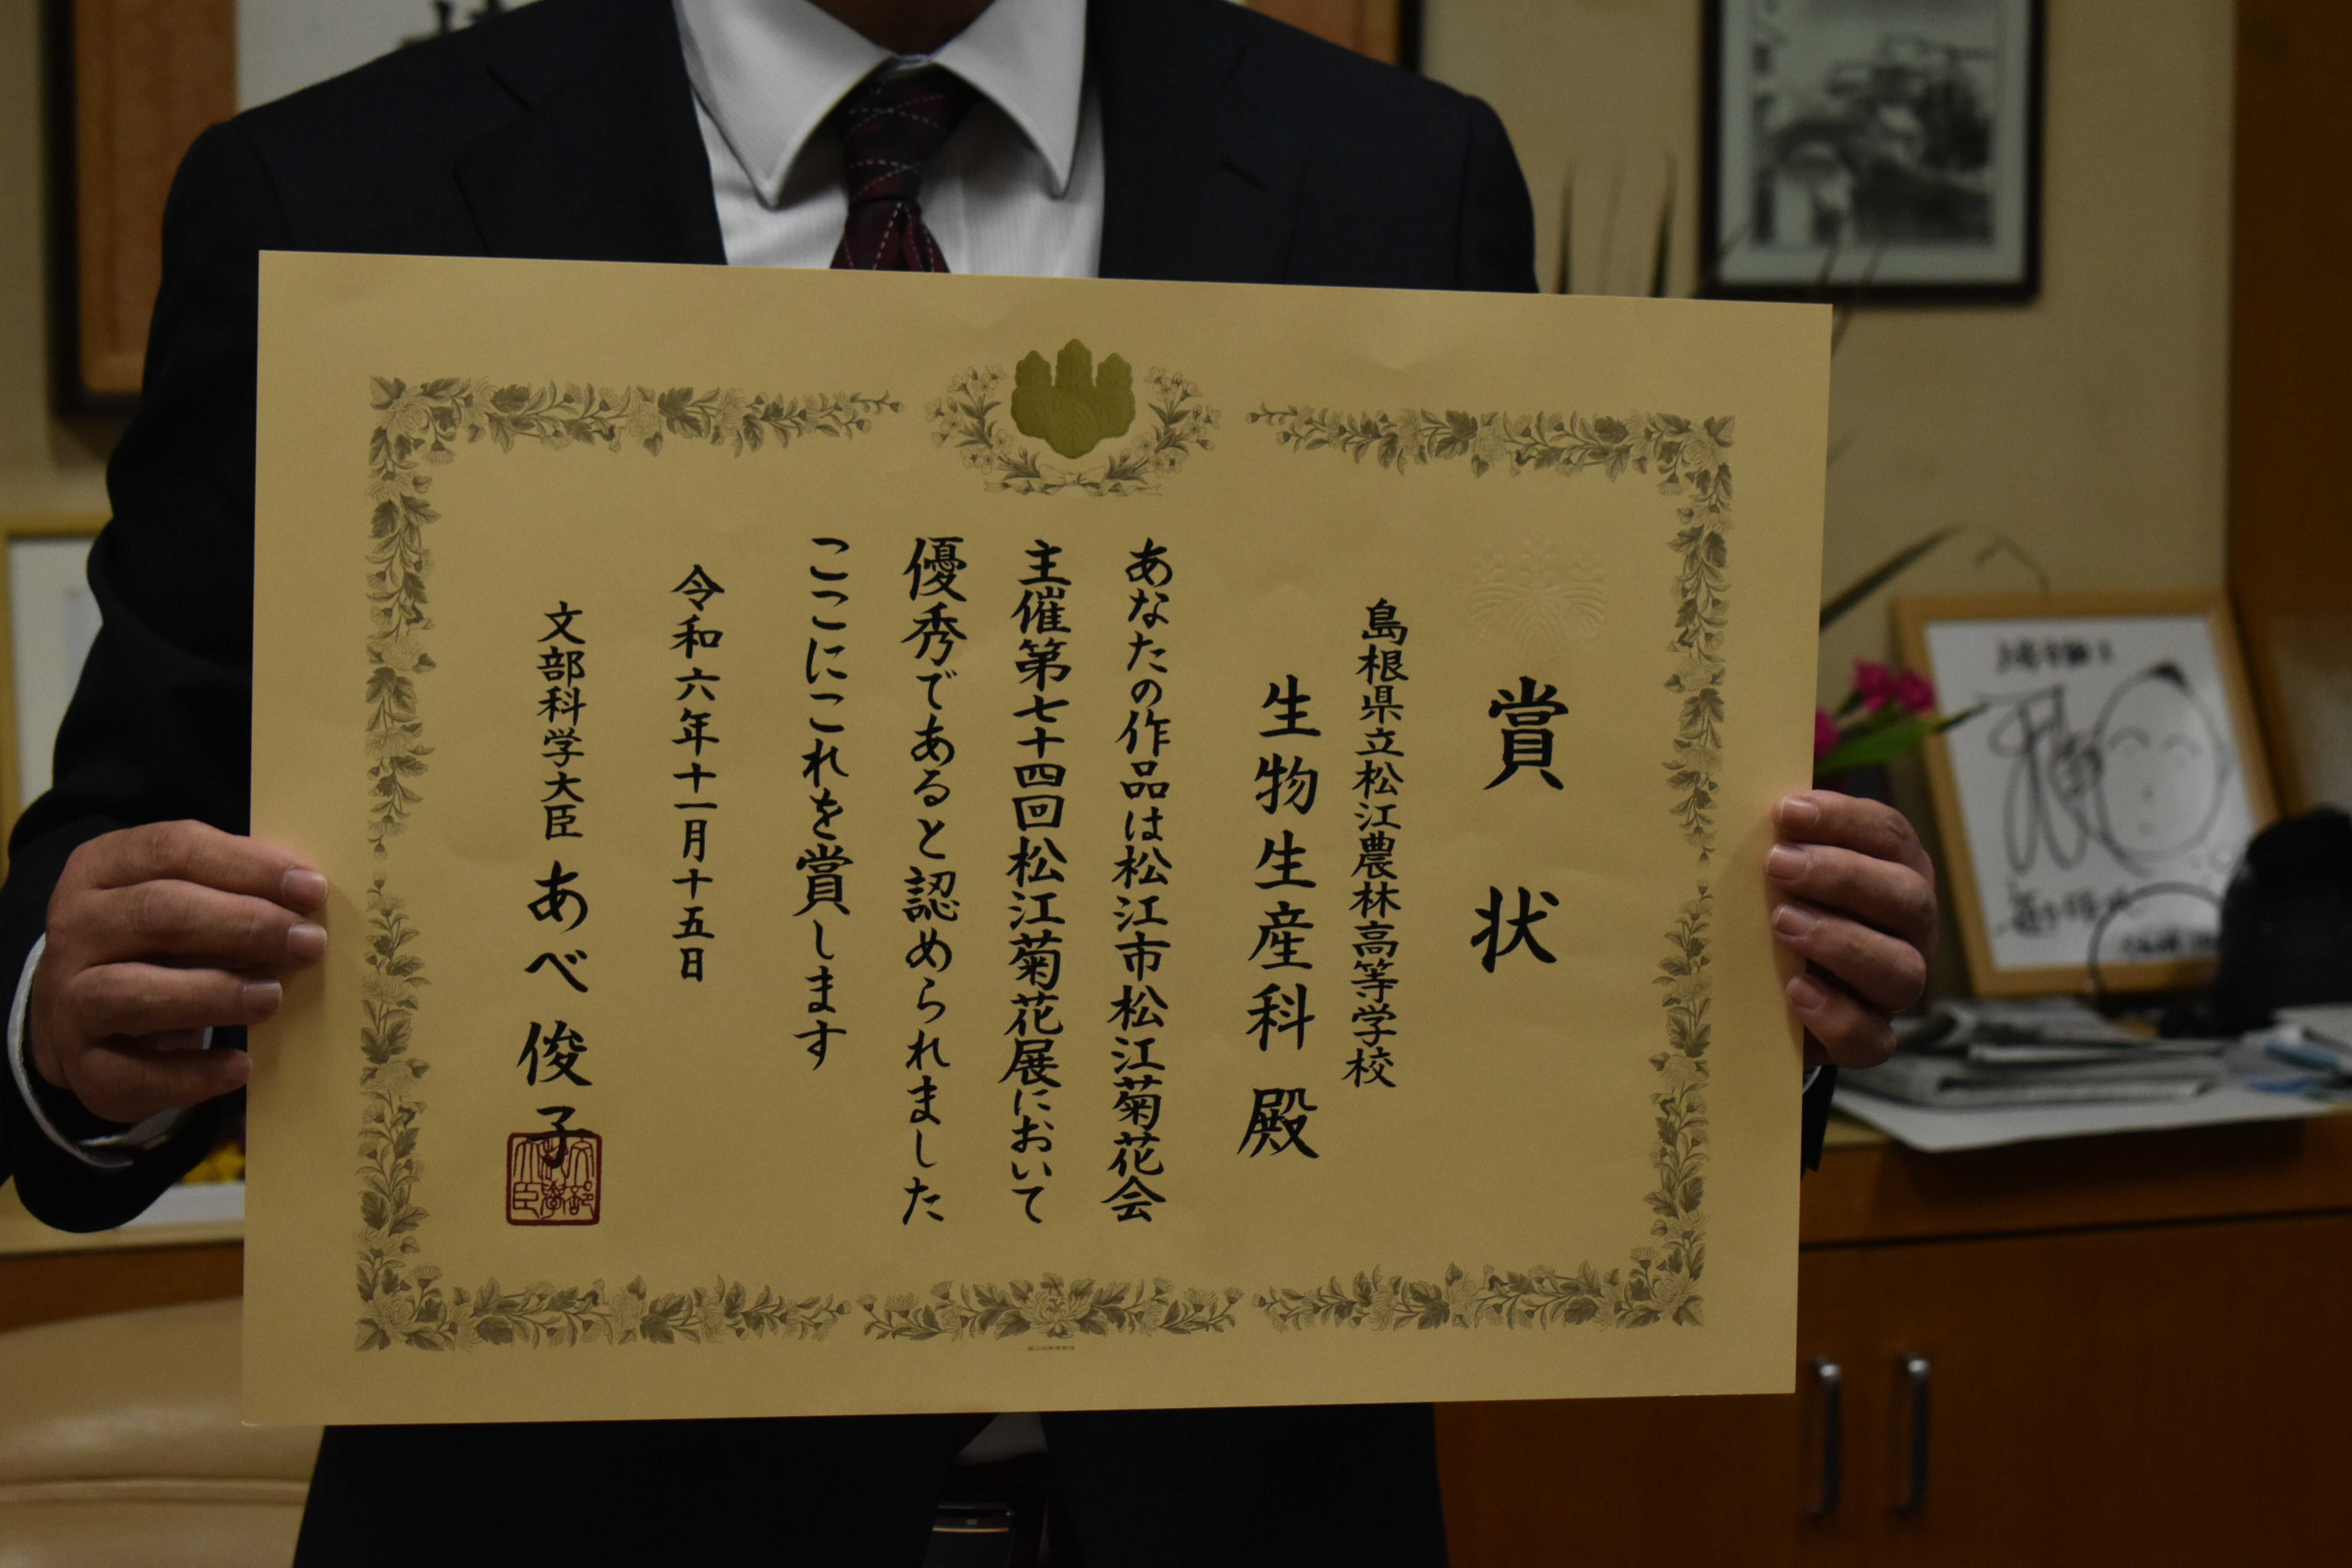 賞状
島根県立松江農林高等学校
生物生産科殿
あなたの作品は松江市松江菊花会
主催第七十四回松江菊花展において
優秀であると認められました
ここにこれを賞します
令和六年十一月十五日
文部科学大臣 あべ俊子